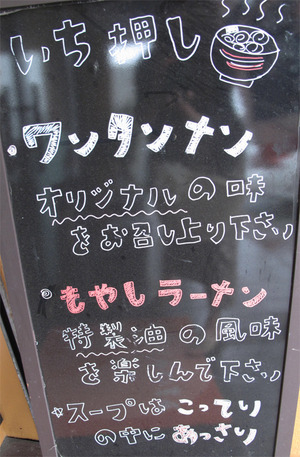 いち押し
・ワンタンナン
オリジナルの味
をお召し上り下さい
◎もやしラーナン
特製油の風味
を楽しんで下さい
☆スープはこってり
の中にあっさり